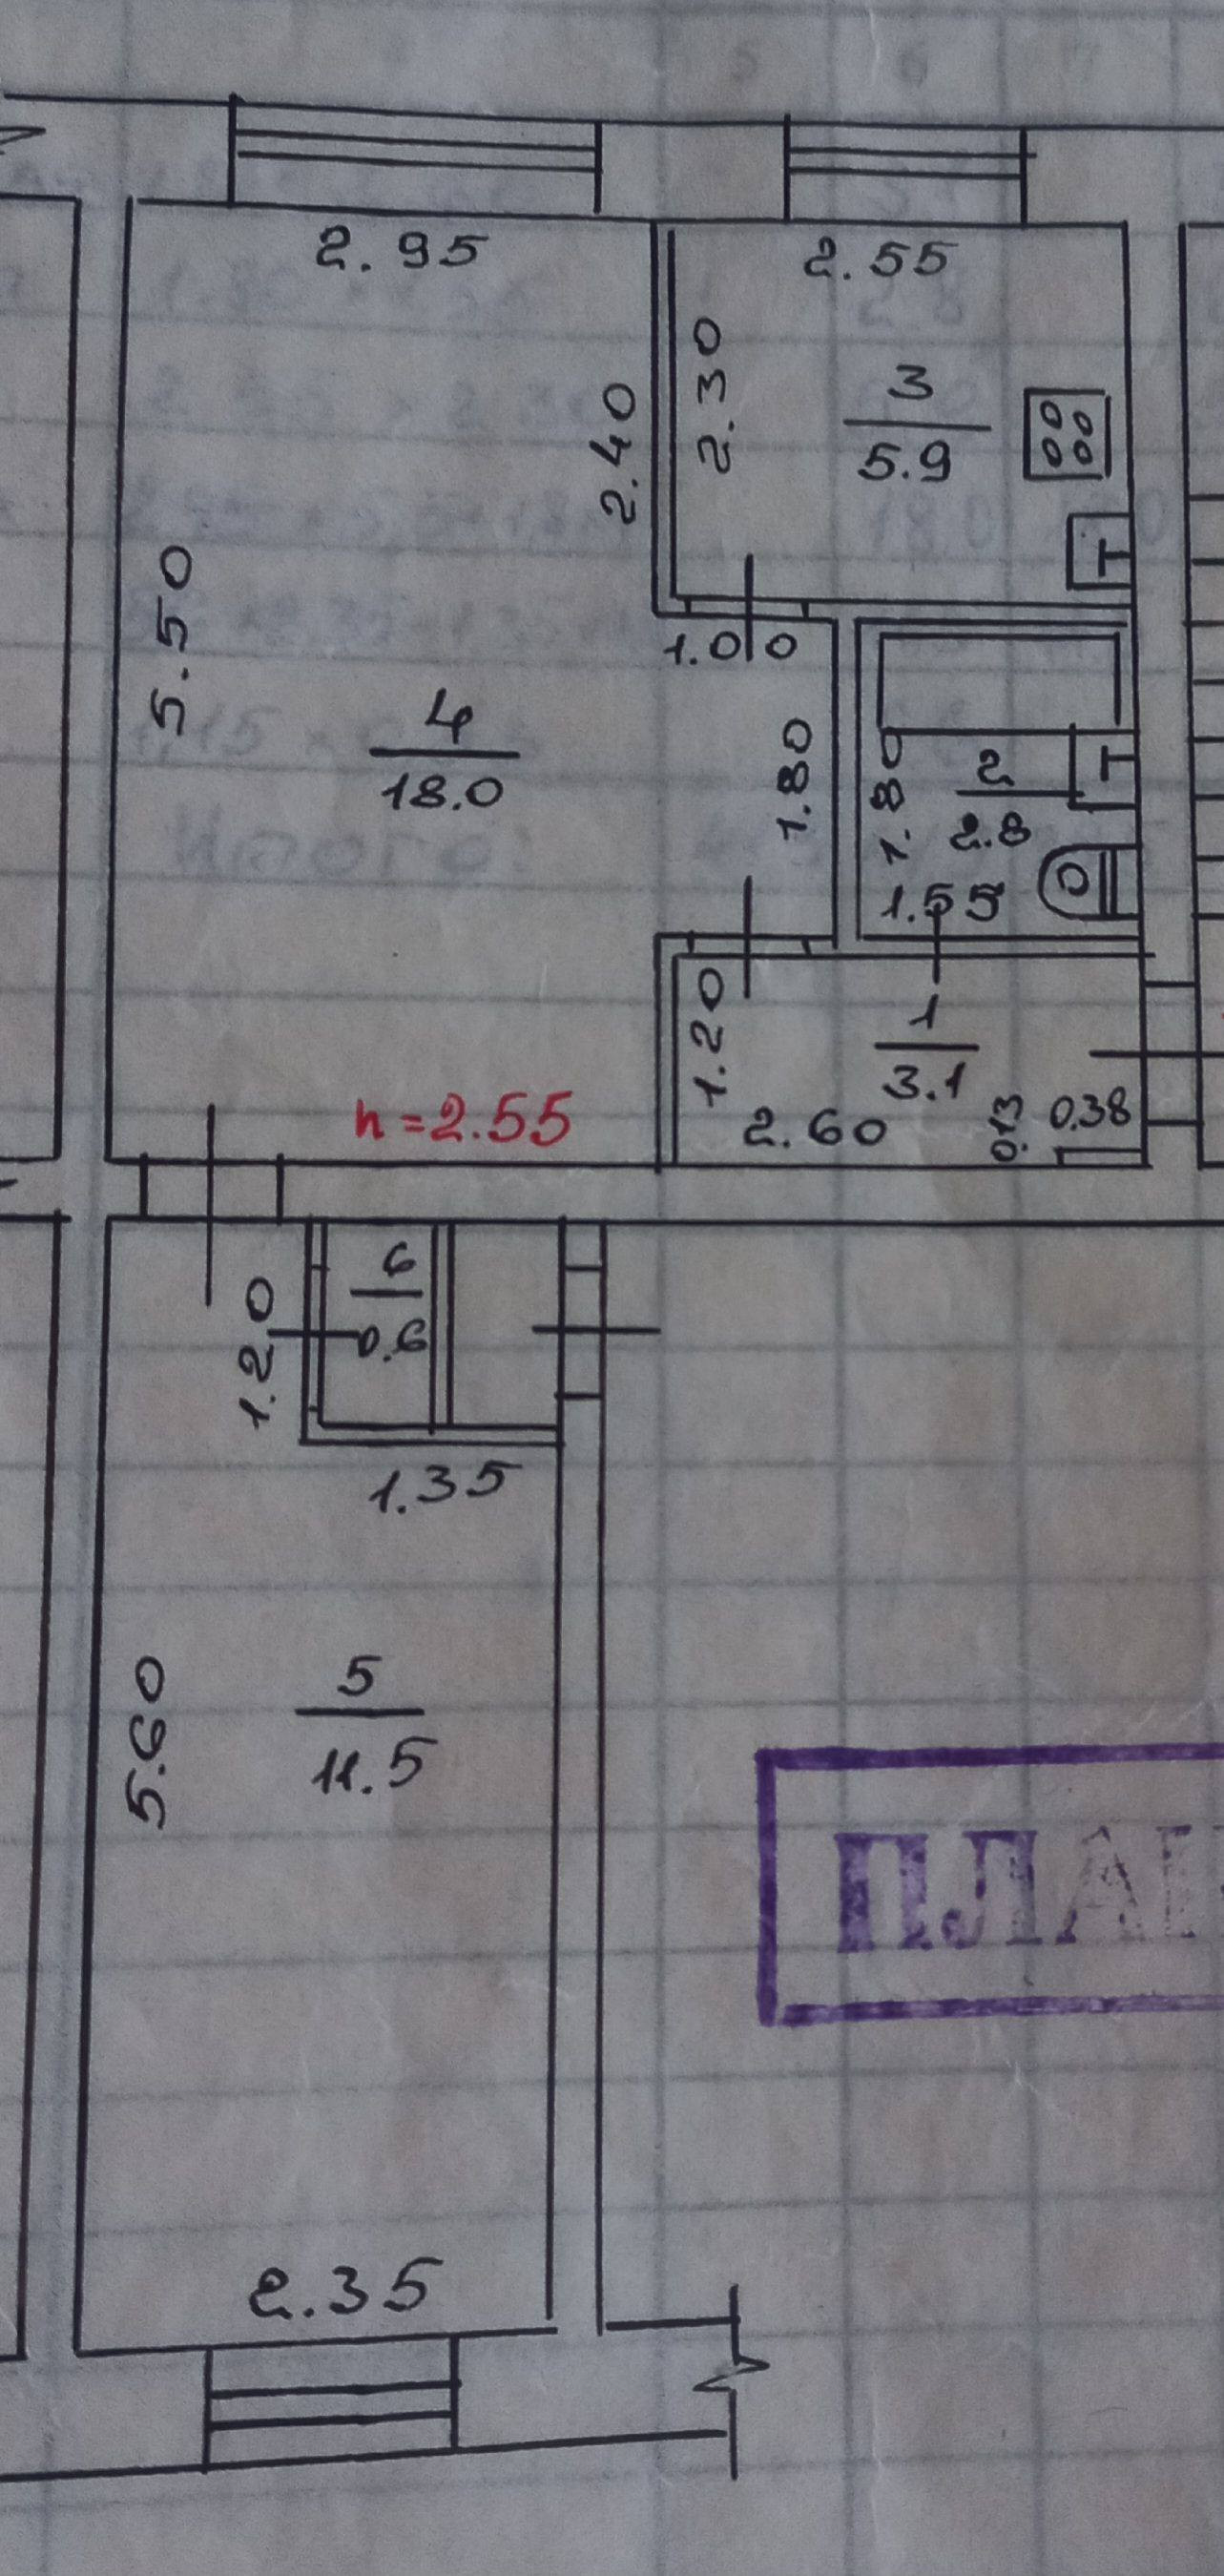 2.95
2.55
2.30
2.40
3
5.9
5.50
1.00
4
18.0
1.80
1.80
2
2.8
1.55
1.20
1
3.1
h=2.55
2.60
0.13
0.38
6
0.6
1.20
1.35
5
11.5
5.60
ПЛАН
2.35